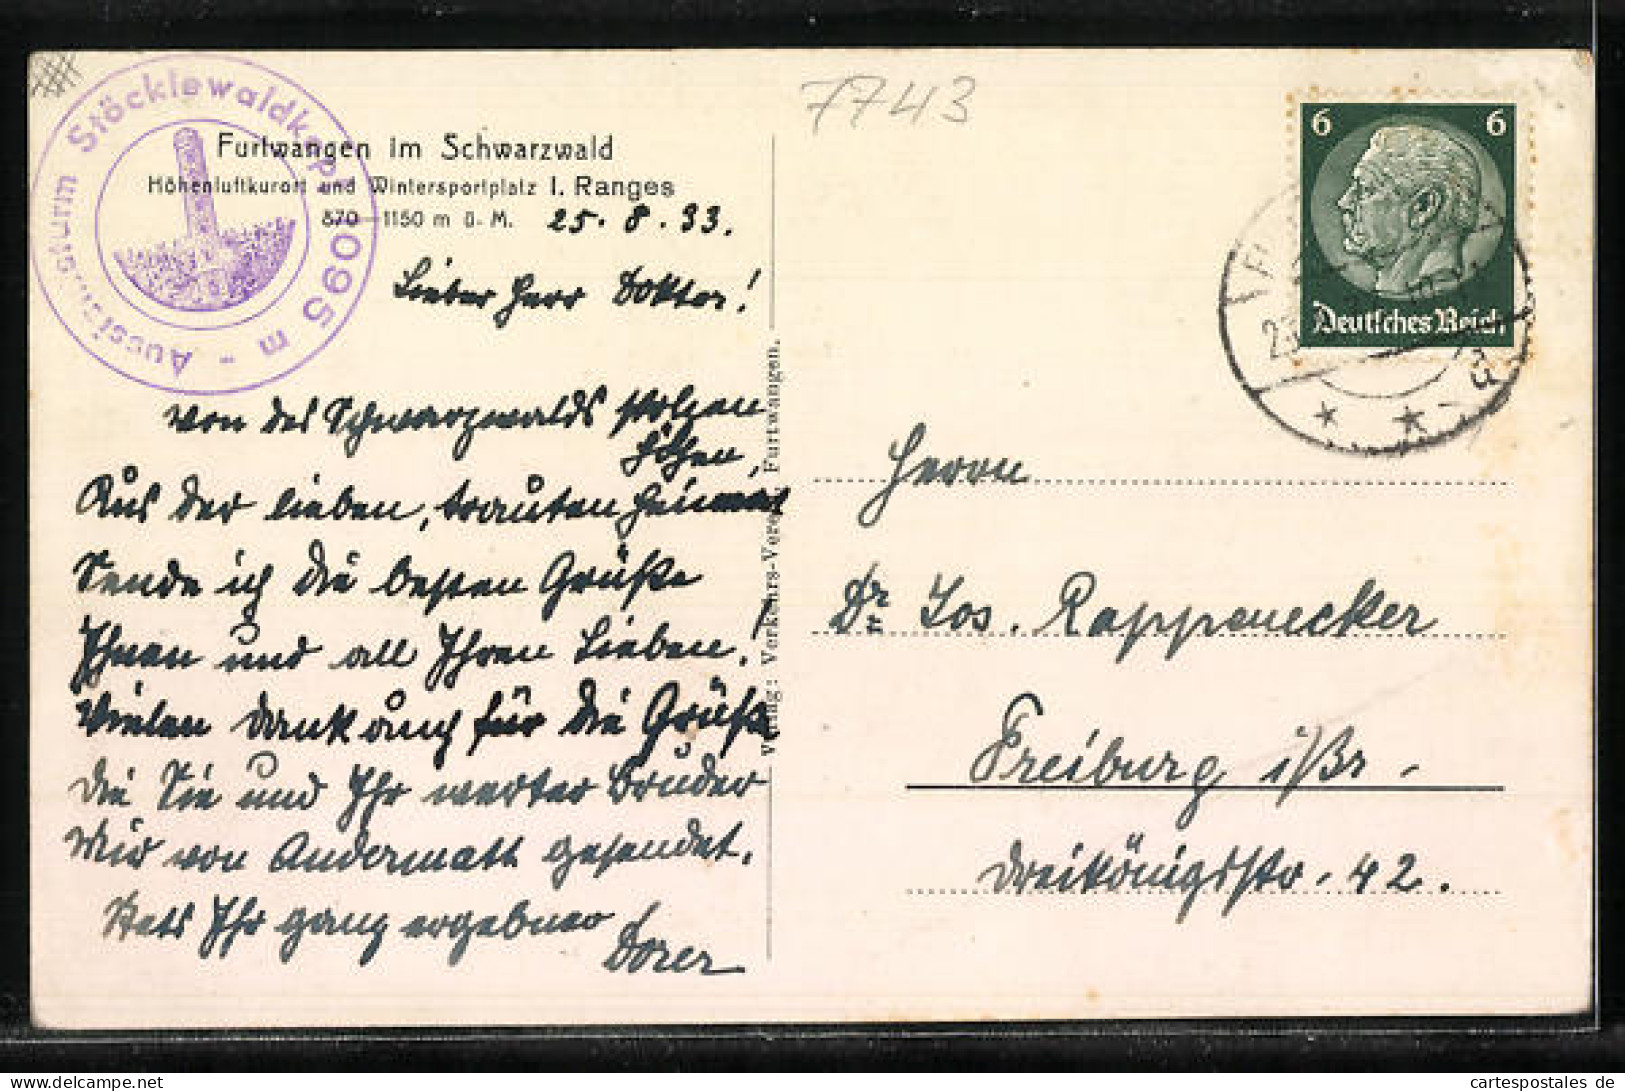 7743
Aussichtsturm Stöcklewaldkopf 1095 m -
Furtwangen im Schwarzwald
Höhenluftkurort und Wintersportplatz I. Ranges
870—1150 m ü. M. 25. 8. 33.
Lieber Herr Doktor!
Von des Schwarzwalds stolzen
Höhen,
Aus der lieben, trauten Heimat
Sende ich die besten Grüße
Ihnen und all Ihren Lieben!
Vielen Dank auch für die Grüße
Die Sie und Ihr werter Bruder
Mir von Andermatt gesendet.
Stets Ihr ganz ergebner
Dorer
Verlag: Verkehrs-Verein Furtwangen.
6 6
Deutsches Reich
Herrn
Dr. Jos. Rappenecker
Freiburg i/Br.
Dreikönigstr. 42.
cartespostales de